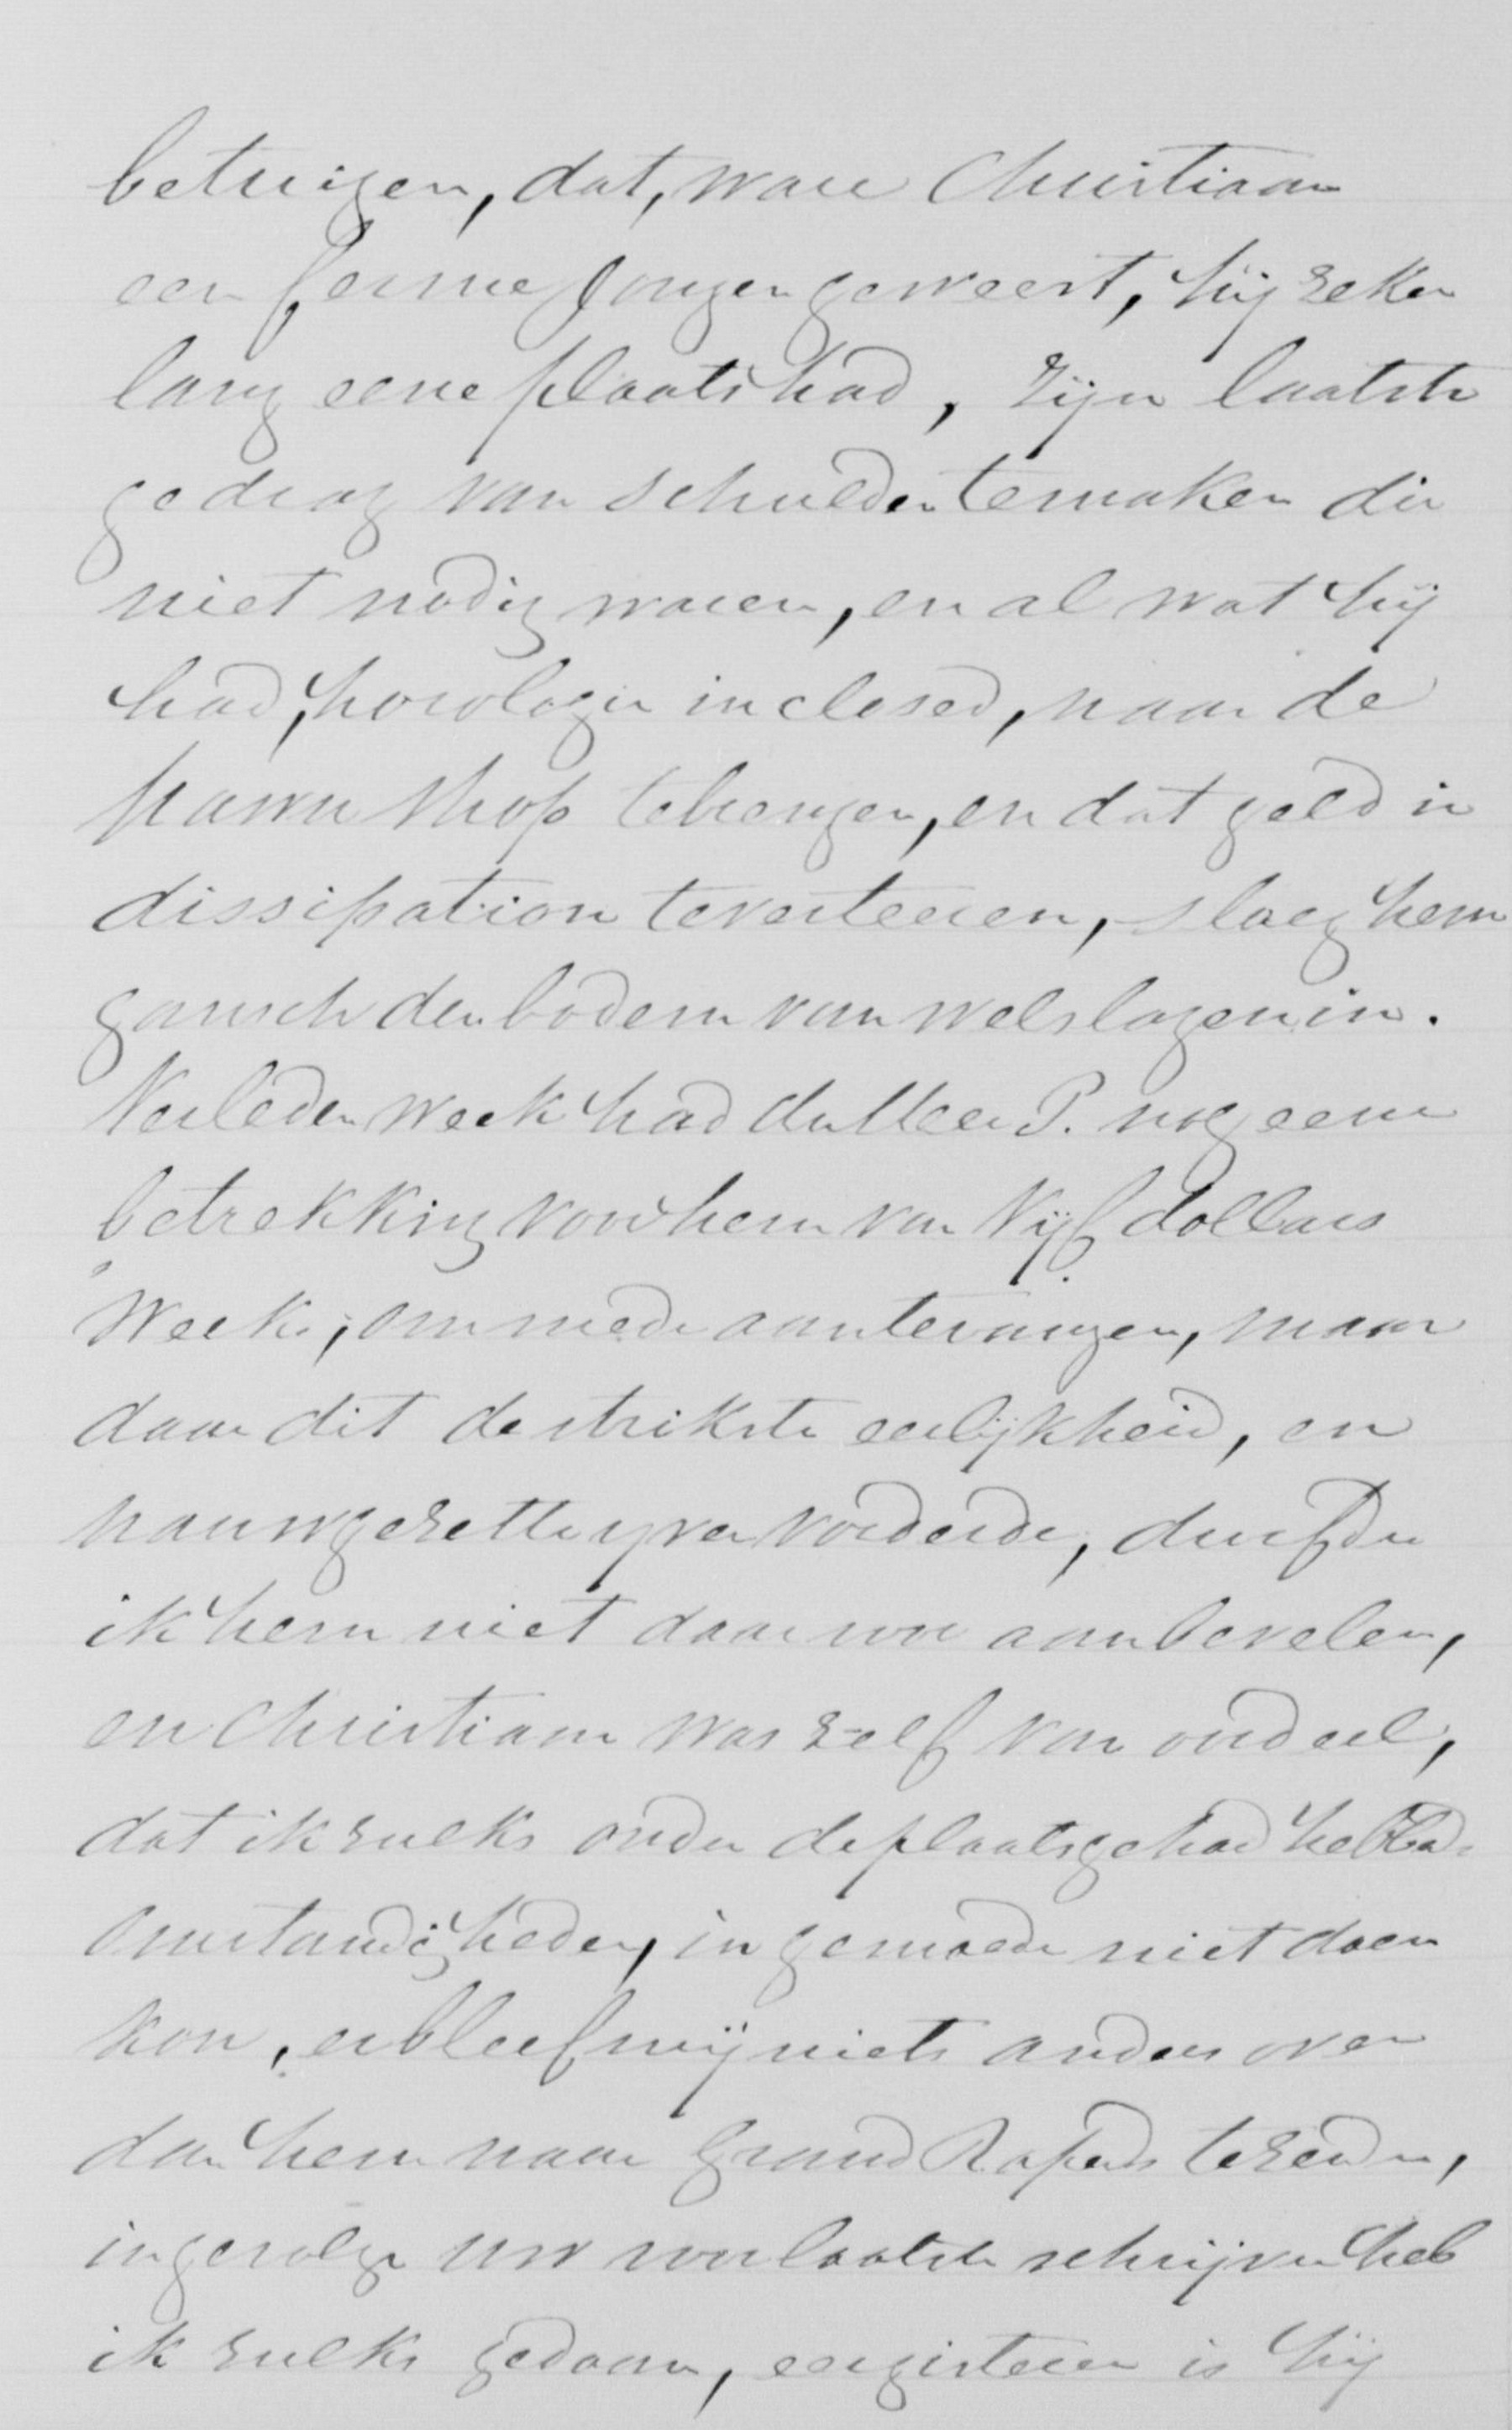 betuigen, dat, ware Christiaan
een ferme Jongen geweest, hij zeker
lang eene plaats had, zijn laatste
gedrag van schulden temaken die
niet nodig waren, en al wat hij
had, horologie inclosed, naar de
Pawn Shop tebrengen, en dat geld in
dissipation teverteeren, sloeg hem
gansch den bodem van welslagen in.
Verleden week had de Heer P. nog eene
betrekking voor hem van Vijf dollars
Week, om mede aantevangen, maar
daar dit de strikste eerlijkheid, en
nauwgezette yver vorderde, durfde
ik hem niet daar voor aanbevelen,
en Christiaan was zelf van oordeel,
dat ik zulks onder de plaatsgehad hebbd.
omstandigheden, in gemoede niet doen
kon, er bleef mij niets anders over
dan hem naar Grand Rapids tezenden,
ingevolge uw voorlaatste schrijven heb
ik zulks gedaan, eergisteren is hij